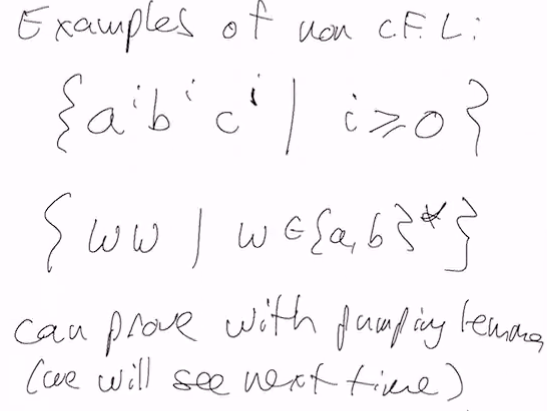 Examples of non CFL:
{aⁱbⁱcⁱ | i ≥ 0}
{ww | w ∈ {a,b}*}
can prove with pumping lemma
(we will see next time)